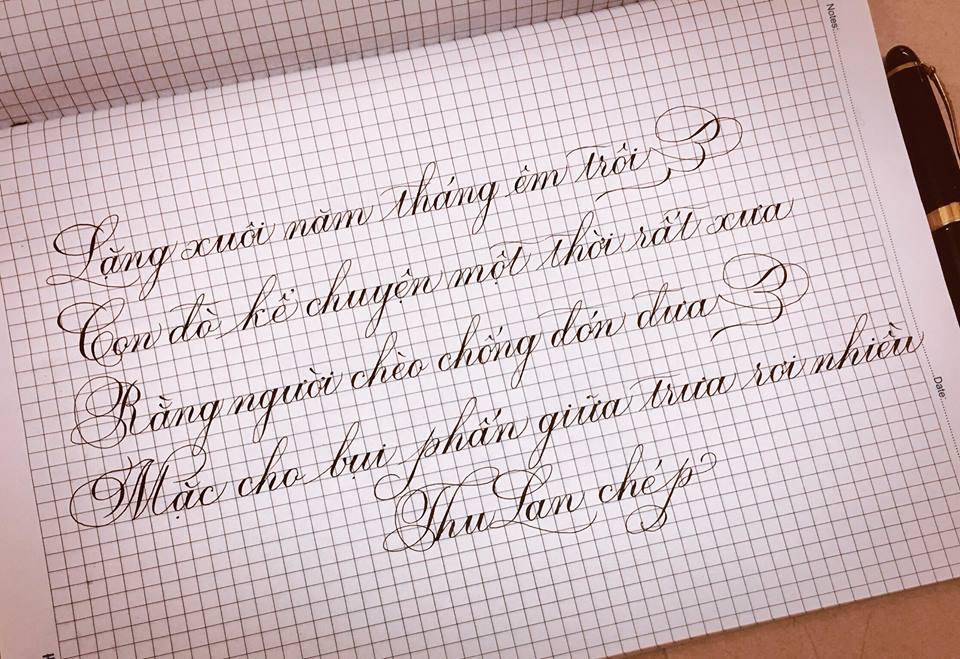 Notes:
Lặng xuôi năm tháng êm trôi
Con đò kể chuyện một thời rất xưa
Rằng người chèo chống đón đưa
Mặc cho bụi phấn giữa trưa rơi nhiều
Thu Lan chép
Date